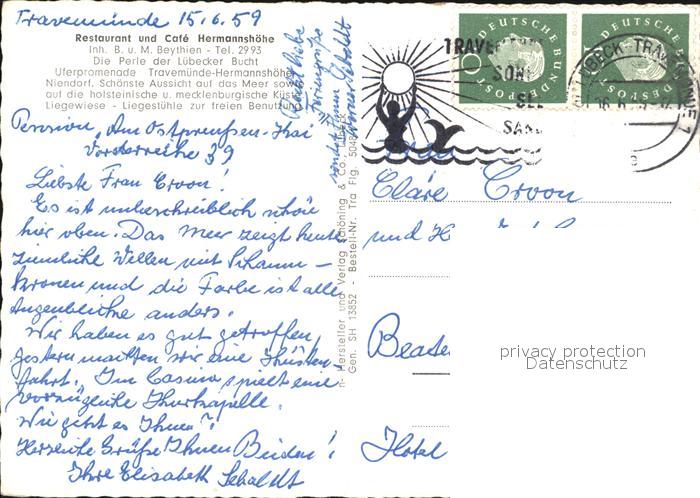 Travemünde 15.6.59
Restaurant und Café Hermannshöhe
Inh. B. u. M. Beythien - Tel. 2993
Die Perle der Lübecker Bucht
Uferpromenade Travemünde-Hermannshöhe
Niendorf. Schönste Aussicht auf das Meer sowie
auf die holsteinische u. mecklenburgische Küste
Liegewiese - Liegestühle zur freien Benutzung
Pension, Am Ostpreußen-Kai
Vorderreihe 39
Liebste Frau Croon!
Es ist unbeschreiblich schön
hier oben. Das Meer zeigt heute
ziemliche Wellen mit Schaum-
kronen und die Farbe ist alle
Augenblicke anders.
Wir haben es gut getroffen,
gestern machten wir eine Küsten-
fahrt. Im Casino spielt eine
vorzügliche Kurkapelle.
Wie geht es Ihnen?
Herzliche Grüße Ihnen Beiden!
Ihre Elisabeth Seboldt
Hersteller und Verlag Schöning & Co., Lübeck
Gen. SH 13852 - Bestell-Nr. Tra Flg. 504
DEUTSCHE BUNDESPOST
10
DEUTSCHE BUNDESPOST
TRAVEMÜNDE
SON
SEE
SAN
LÜBECK-TRAVEMÜNDE
Cläre Croon
und H
Hotel
privacy protection
Datenschutz